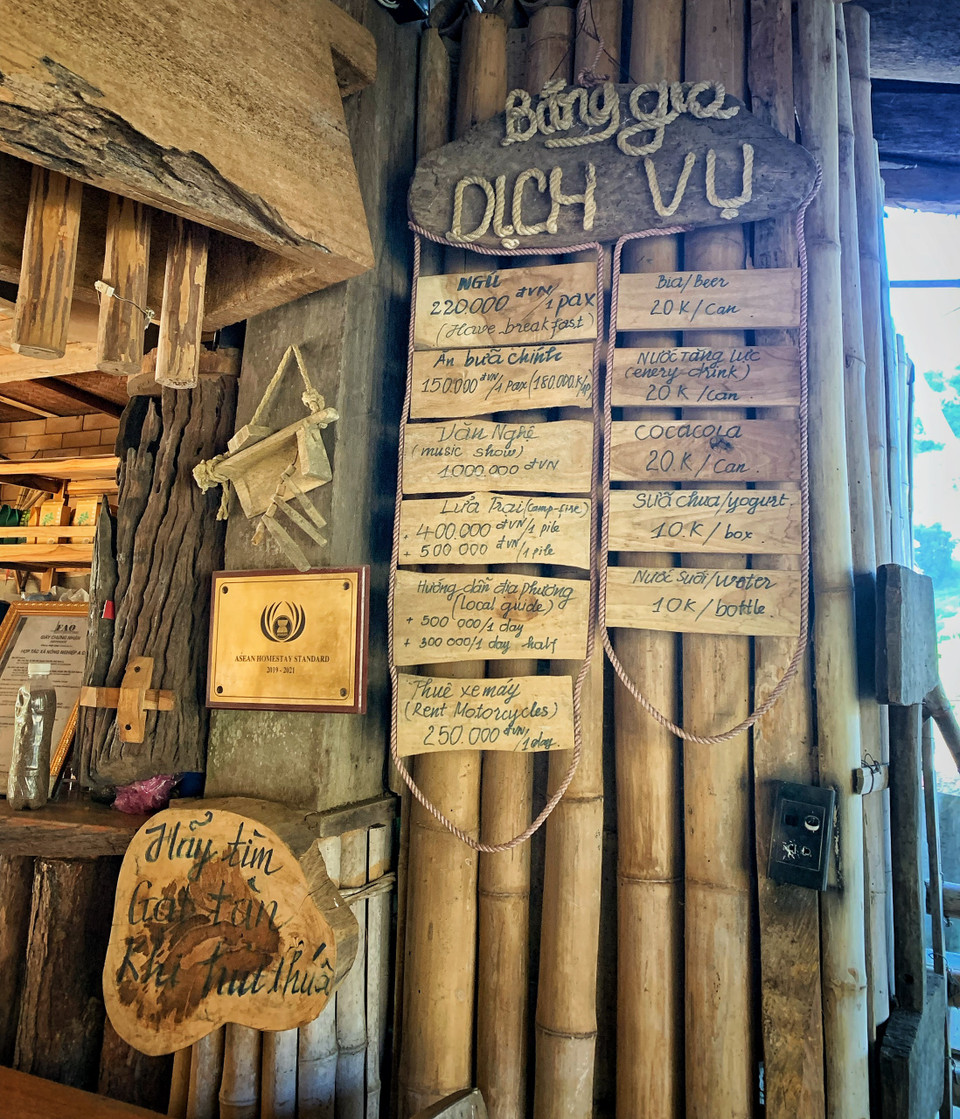 Bảng gia
DỊCH VỤ
NGỦ
220.000 đVN/1 pax
(Have breakfast)
Ăn bữa chính
150.000 đVN/1 pax (180.000K/
Văn Nghệ
(music show)
1.000.000 đVN
Lửa Trại (camp-fire)
+ 400.000 đVN/1 pile
+ 500 000 đVN/1 pile
Hướng dẫn địa phương
(local guide)
+ 500 000/1 day
+ 300 000/1 day half
Thuê xe máy
(Rent Motorcycles)
250.000 đVN/1 day.
Bia/Beer
20 K/Can
NƯỚC TĂNG LỰC
(enery drink)
20 K/Can
COCACOLA
20.K/Can.
SỮA chua/yogurt.
10.K/box.
Nước suối/woter
10K/bottle.
ASEAN HOMESTAY STANDARD
2019 - 2021
FAO
GIẤY CHỨNG NHẬN
HỢP TÁC XÃ NÔNG NGHIỆP
Hãy tìm
Gặt tàn
Khi hút thuốc